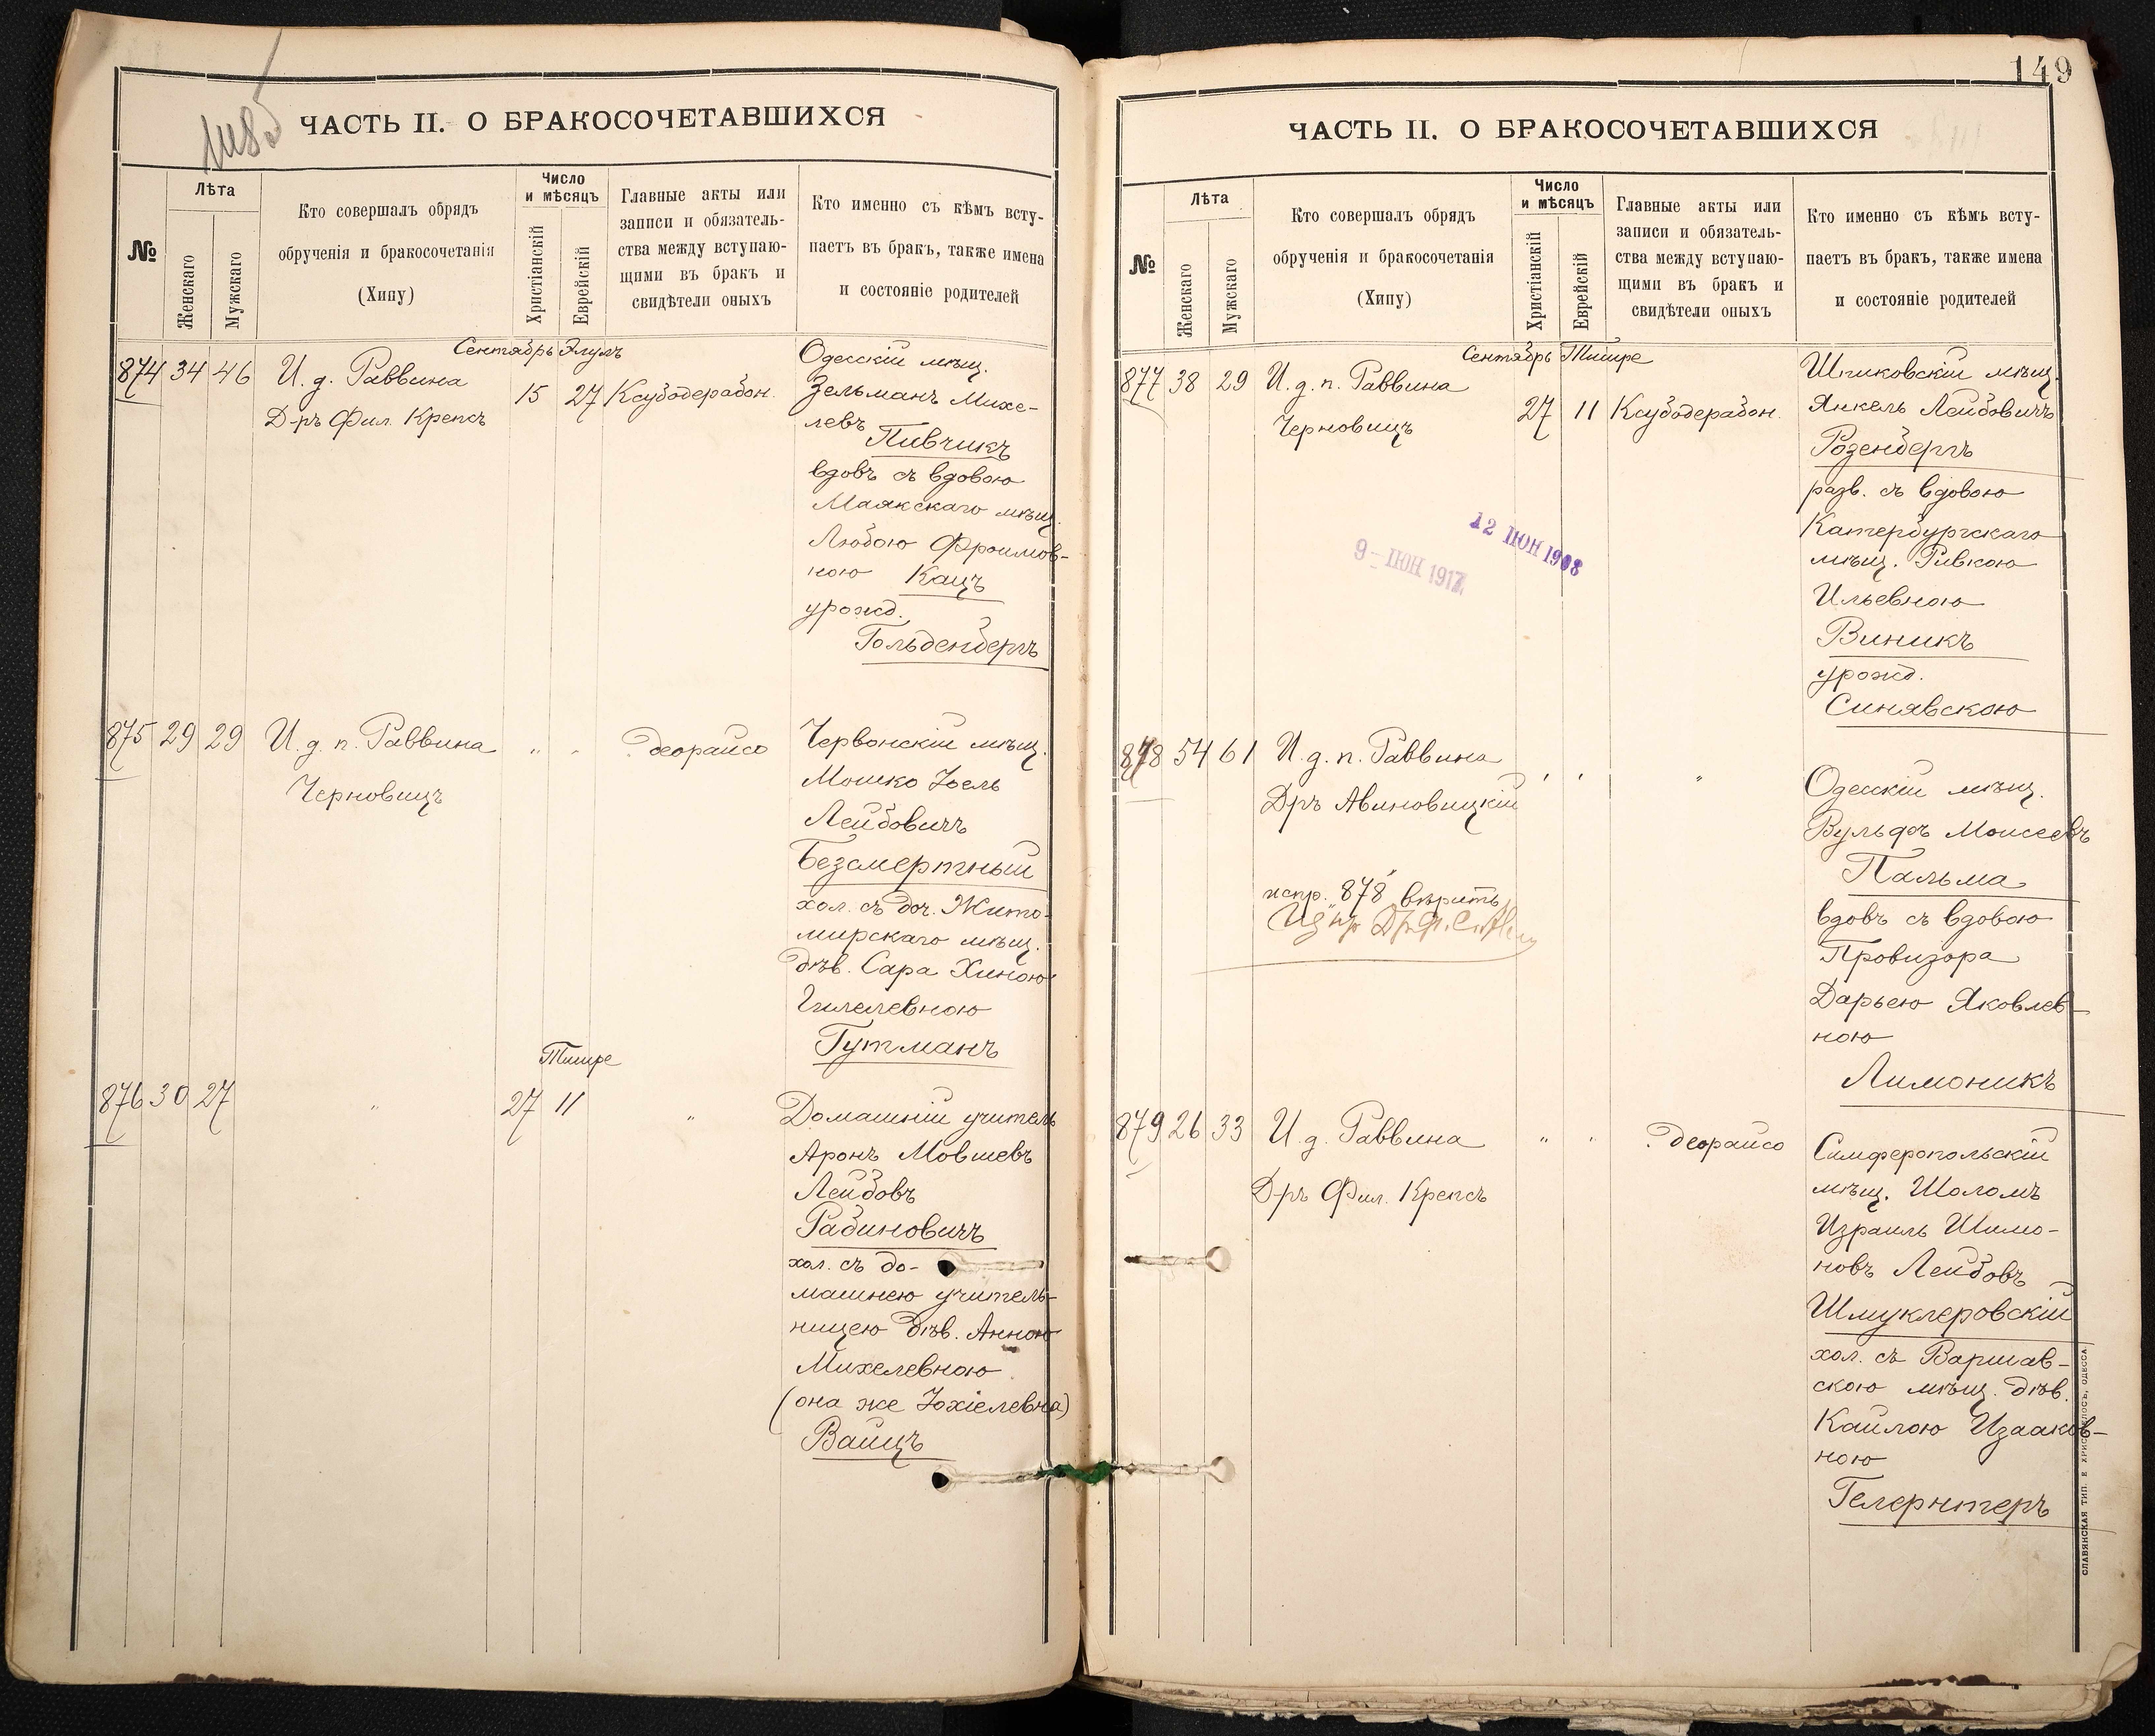 ЧАСТЬ II. О БРАКОСОЧЕТАВШИХСЯ
№
Лѣта
Женскаго
Мужскаго
Кто совершалъ обрядъ
обрученія и бракосочетанія
(Хипу)
Число
и мѣсяцъ
Христіанскій
Еврейскій
Главные акты или
записи и обязатель-
ства между вступаю-
щими въ бракъ и
свидѣтели оныхъ
Кто именно съ кѣмъ всту-
паетъ въ бракъ, также имена
и состояніе родителей
Сентябрь Элулъ
874 34 46 И. д. Раввина
Д-ръ Фил. Крепсъ
15 27 Ксубодерабон.
Одесскій мѣщ.
Зельманъ Михе-
левъ
Пивчикъ
вдовъ съ вдовою
Маякскаго мѣщ.
Любою Фроимов-
ною Кацъ
урожд.
Гольденбергъ
875 29 29 И. д. п. Раввина
Черновицъ
" " . деорайсо
Червонскій мѣщ.
Мошко Іоель
Лейбовичъ
Безсмертный
хол. съ доч. Жито-
мирскаго мѣщ.
дѣв. Сара Хиною
Гилелевною
Гутманъ
Тишре
876 30 27 " 27 11 "
Домашній учитель
Аронъ Мовшевъ
Лейбовъ
Рабиновичъ
хол. съ до-
машнею учитель-
ницею дѣв. Анною
Михелевною
(она же Іохіелевна)
Вайцъ
149
ЧАСТЬ II. О БРАКОСОЧЕТАВШИХСЯ
№
Лѣта
Женскаго
Мужскаго
Кто совершалъ обрядъ
обрученія и бракосочетанія
(Хипу)
Число
и мѣсяцъ
Христіанскій
Еврейскій
Главные акты или
записи и обязатель-
ства между вступаю-
щими въ бракъ и
свидѣтели оныхъ
Кто именно съ кѣмъ всту-
паетъ въ бракъ, также имена
и состояніе родителей
Сентябрь Тишре
877 38 29 И. д. п. Раввина
Черновицъ
27 11 Ксубодерабон.
Шпиковскій мѣщ.
Янкель Лейбовичъ
Розенбергъ
разв. съ вдовою
Катербургскаго
мѣщ. Ривкою
Ильевною
Виникъ
урожд.
Синявскою
12 ІЮН 1908
9 - ІЮН 1917
878 54 61 И. д. п. Раввина
Д-ръ Авиновицкій
" " "
испр. "878" вѣрить
Одесскій мѣщ.
Вульфъ Моисеевъ
Пальма
вдовъ съ вдовою
Провизора
Дарьею Яковлев-
ною
Лимоникъ
879 26 33 И. д. Раввина
Д-ръ Фил. Крепсъ
" " . деорайсо
Симферопольскій
мѣщ. Шоломъ
Израиль Шимо-
новъ Лейбовъ
Шмуклеровскій
хол. съ Варшав-
скою мѣщ. дѣв.
Кайлою Изааков-
ною
Гелернтеръ
СЛАВЯНСКАЯ ТИП. Е. ХРИСОГЕЛОСЪ, ОДЕССА.